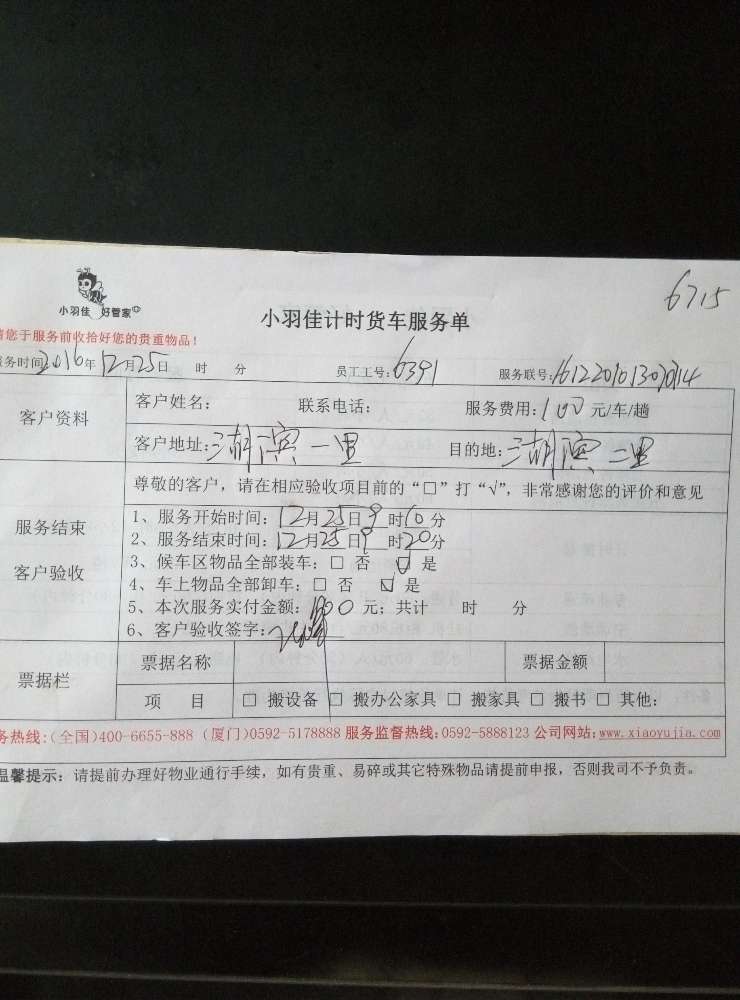 6715
小羽佳 好管家
小羽佳计时货车服务单
请您于服务前收拾好您的贵重物品！
服务时间：2016年12月25日 时 分 员工工号：6391 服务联号：
客户资料
客户姓名： 联系电话： 服务费用：100元/车/趟
客户地址：湖滨一里 目的地：湖滨二里
服务结束
客户验收
尊敬的客户，请在相应验收项目前的“□”打“√”，非常感谢您的评价和意见
1、服务开始时间：12月25日9时10分
2、服务结束时间：12月25日9时20分
3、候车区物品全部装车：□ 否 ☑ 是
4、车上物品全部卸车：□ 否 ☑ 是
5、本次服务实付金额：100元；共计 时 分
6、客户验收签字：
票据栏
票据名称 票据金额
项 目 □ 搬设备 □ 搬办公家具 □ 搬家具 □ 搬书 □ 其他：
务热线：(全国)400-6655-888 (厦门)0592-5178888 服务监督热线：0592-5888123 公司网站：www.xiaoyujia.com
温馨提示：请提前办理好物业通行手续，如有贵重、易碎或其它特殊物品请提前申报，否则我司不予负责。